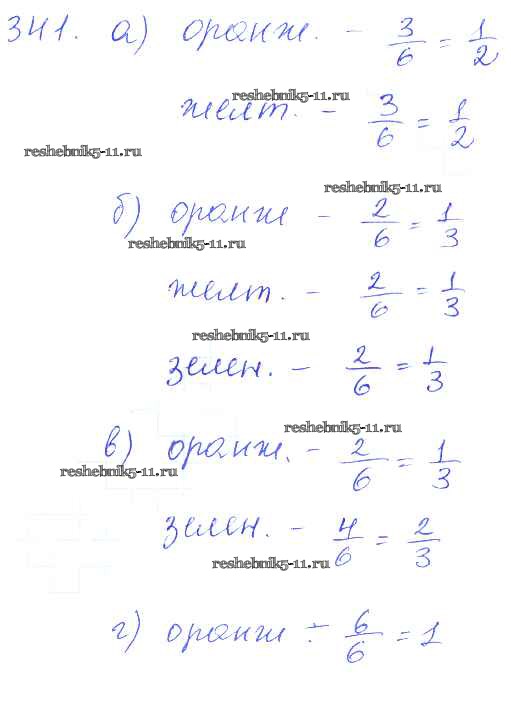 341. а) оранж. - 3/6 = 1/2
reshebnik5-11.ru
желт. - 3/6 = 1/2
reshebnik5-11.ru
reshebnik5-11.ru
б) оранж - 2/6 = 1/3
reshebnik5-11.ru
желт. - 2/6 = 1/3
reshebnik5-11.ru
зелен. - 2/6 = 1/3
reshebnik5-11.ru
в) оранж. - 2/6 = 1/3
reshebnik5-11.ru
зелен. - 4/6 = 2/3
reshebnik5-11.ru
г) оранж - 6/6 = 1